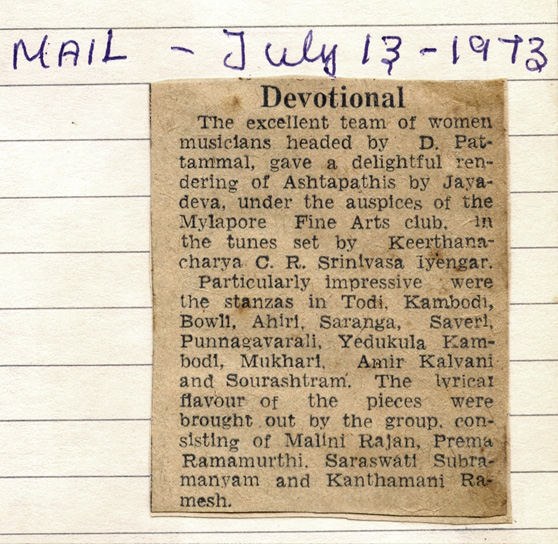 MAIL - July 13 - 1973
Devotional
The excellent team of women
musicians headed by D. Pat-
tammal, gave a delightful ren-
dering of Ashtapathis by Jaya-
deva, under the auspices of the
Mylapore Fine Arts club, in
the tunes set by Keerthana-
charya C. R. Srinivasa Iyengar.
Particularly impressive were
the stanzas in Todi, Kambodi,
Bowli, Ahiri, Saranga, Saveri,
Punnagavarali, Yedukula Kam-
bodi, Mukhari, Amir Kalyani
and Sourashtram. The lyrical
flavour of the pieces were
brought out by the group, con-
sisting of Malini Rajan, Prema
Ramamurthi, Saraswati Subra-
manyam and Kanthamani Ra-
mesh.